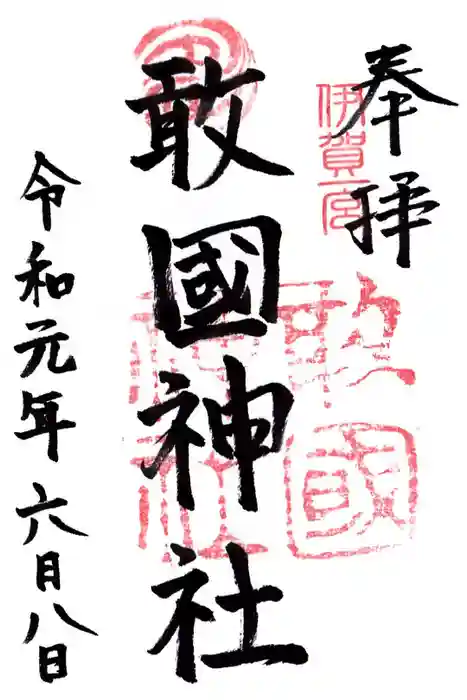 奉拝
伊賀一宮
敢國神社
敢國神社
令和元年六月八日